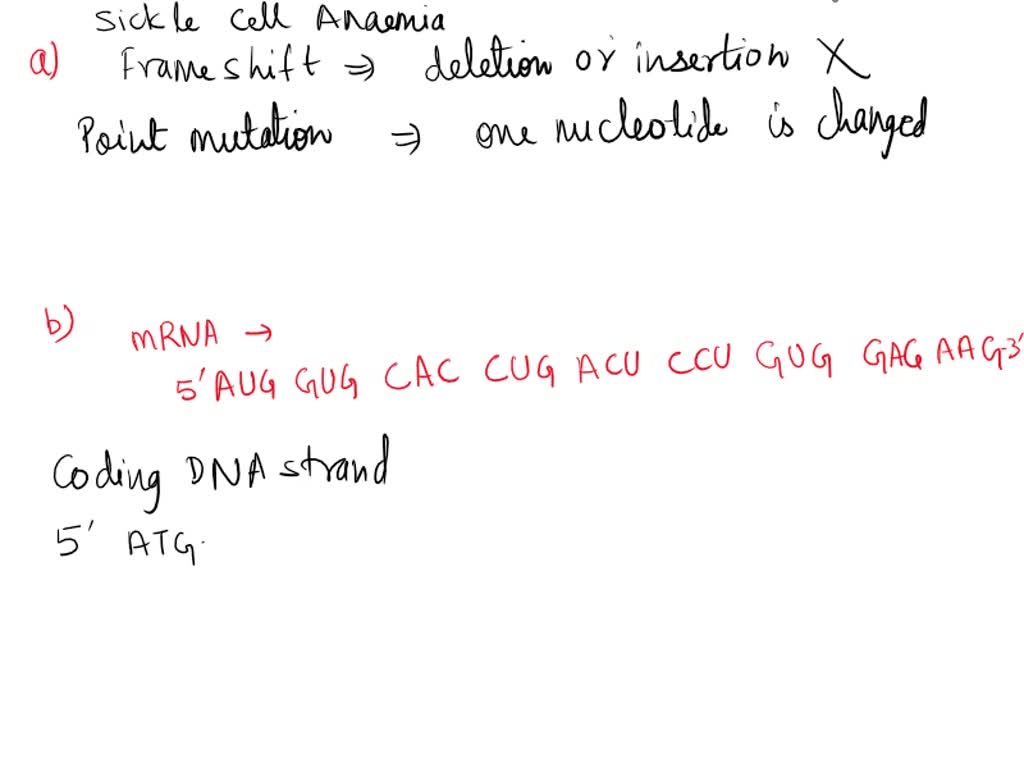 Sickle Cell Anaemia
a) Frameshift ⇒ deletion or insertion X
Point mutation ⇒ one nucleotide is changed
b) mRNA →
5' AUG GUG CAC CUG ACU CCU GUG GAG AAG-3'
Coding DNA strand
5' ATG